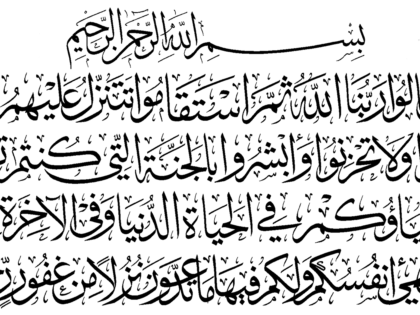 بِسْمِ اللهِ الرَّحْمٰنِ الرَّحِيْمِ
الوا رَبُّنَا اللهُ ثُمَّ اسْتَقَامُوا تَتَنَزَّلُ عَلَيْهِمُ
وَلَا تَحْزَنُوا وَأَبْشِرُوا بِالْجَنَّةِ الَّتِي كُنْتُمْ
ياؤُكُمْ فِي الْحَيَاةِ الدُّنْيَا وَفِي الْآخِرَةِ
أَنْفُسُكُمْ وَلَكُمْ فِيهَا مَا تَدَّعُونَ نُزُلًا مِنْ غَفُورٍ